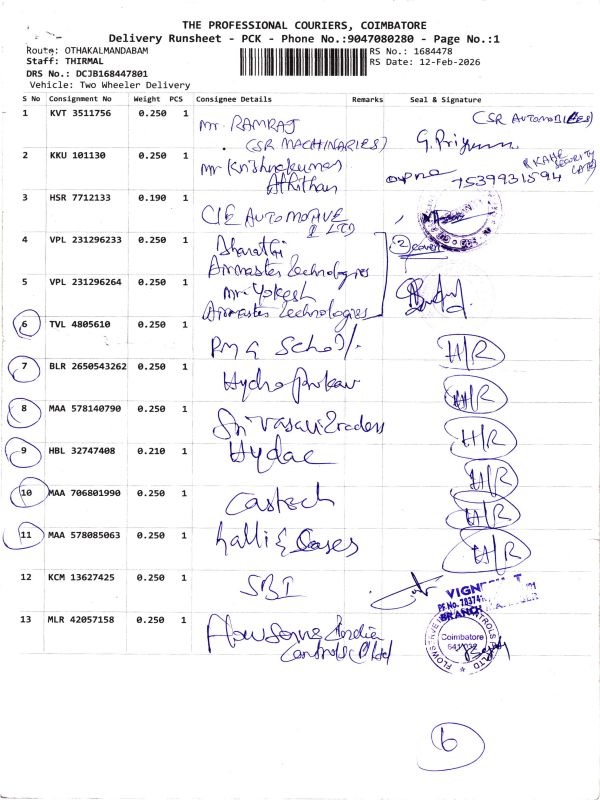 THE PROFESSIONAL COURIERS, COIMBATORE
Delivery Runsheet - PCK - Phone No.:9047080280 - Page No.:1
Route: OTHAKALMANDABAM
RS No.: 1684478
Staff: THIRMAL
RS Date: 12-Feb-2026
DRS No.: DCJB168447801
Vehicle: Two Wheeler Delivery
S No Consignment No Weight PCS Consignee Details Remarks Seal & Signature
1 KVT 3511756 0.250 1 Mr. RAMRAJ
(SR MACHINARIES)
2 KKU 101130 0.250 1 Mr Krishnakumar
Athithan 7539931594 SECURITY
3 HSR 7712133 0.190 1
CIE AUTOMOTIVE
LTD
4 VPL 231296233 0.250 1 Bharathi
Airmaster Technologies
5 VPL 231296264 0.250 1 Mr. Yokesh
Airmaster Technologies
6 TVL 4805610 0.250 1 PMG School H/R
7 BLR 2650543262 0.250 1 H/R
8 MAA 578140790 0.250 1 Sri Vasavi Traders H/R
9 HBL 32747408 0.210 1 Hydac H/R
10 MAA 706801990 0.250 1 Castech H/R
11 MAA 578085063 0.250 1 H/R
12 KCM 13627425 0.250 1 SBI
BRANCH MANAGER
13 MLR 42057158 0.250 1 Flowserve India
Controls P Ltd
Coimbatore
6